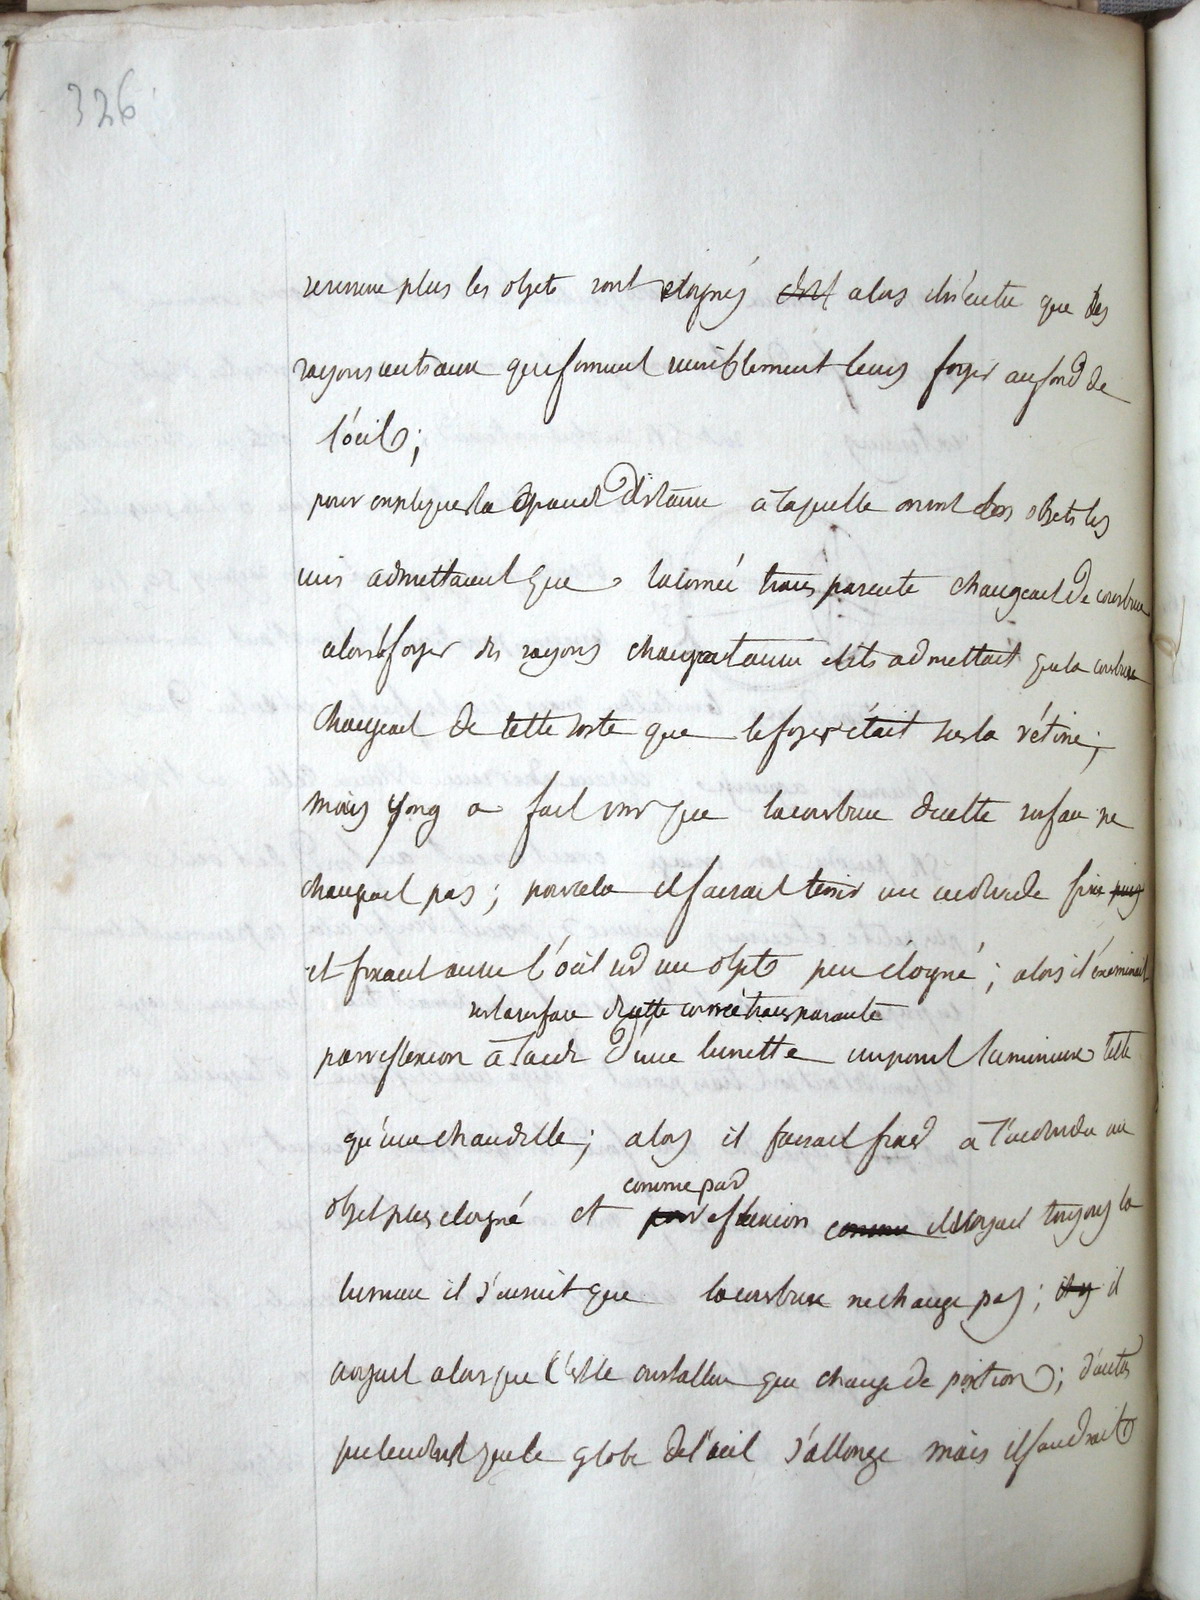 326
resserre plus les objets sont eloignés alors il n'entre que des
rayons centraux qui forment sensiblement leurs foyer au fond de
l'oeil;
pour expliquer la grande distance a laquelle on voit des objets les
uns admettaient que la cornée transparente changeait de courbure
alors le foyer des rayons changeait aussi et ils admettait que la courbure
changeait de telle sorte que le foyer était sur la rétine;
mais yong a fait voir que la courbure de cette surface ne
changeait pas; pour cela il faisait tenir un individu fixe puis
et fixant avec l'oeil sur un objet peu éloigné; alors il examinait
sur la surface de cette cornée transparente
par reflexion à l'aide d'une lunette un point lumineux telle
qu'une chandelle; alors il faisait fixer a l'individu un
comme par
objet plus eloigné et par reflexion comme il voyait toujours la
lumiere il s'ensuit que la courbure ne change pas; il y il
croyait alors que c'est le cristallin que change de position; d'autres
pretendent que le globe de l'oeil s'allonge mais il faudrait